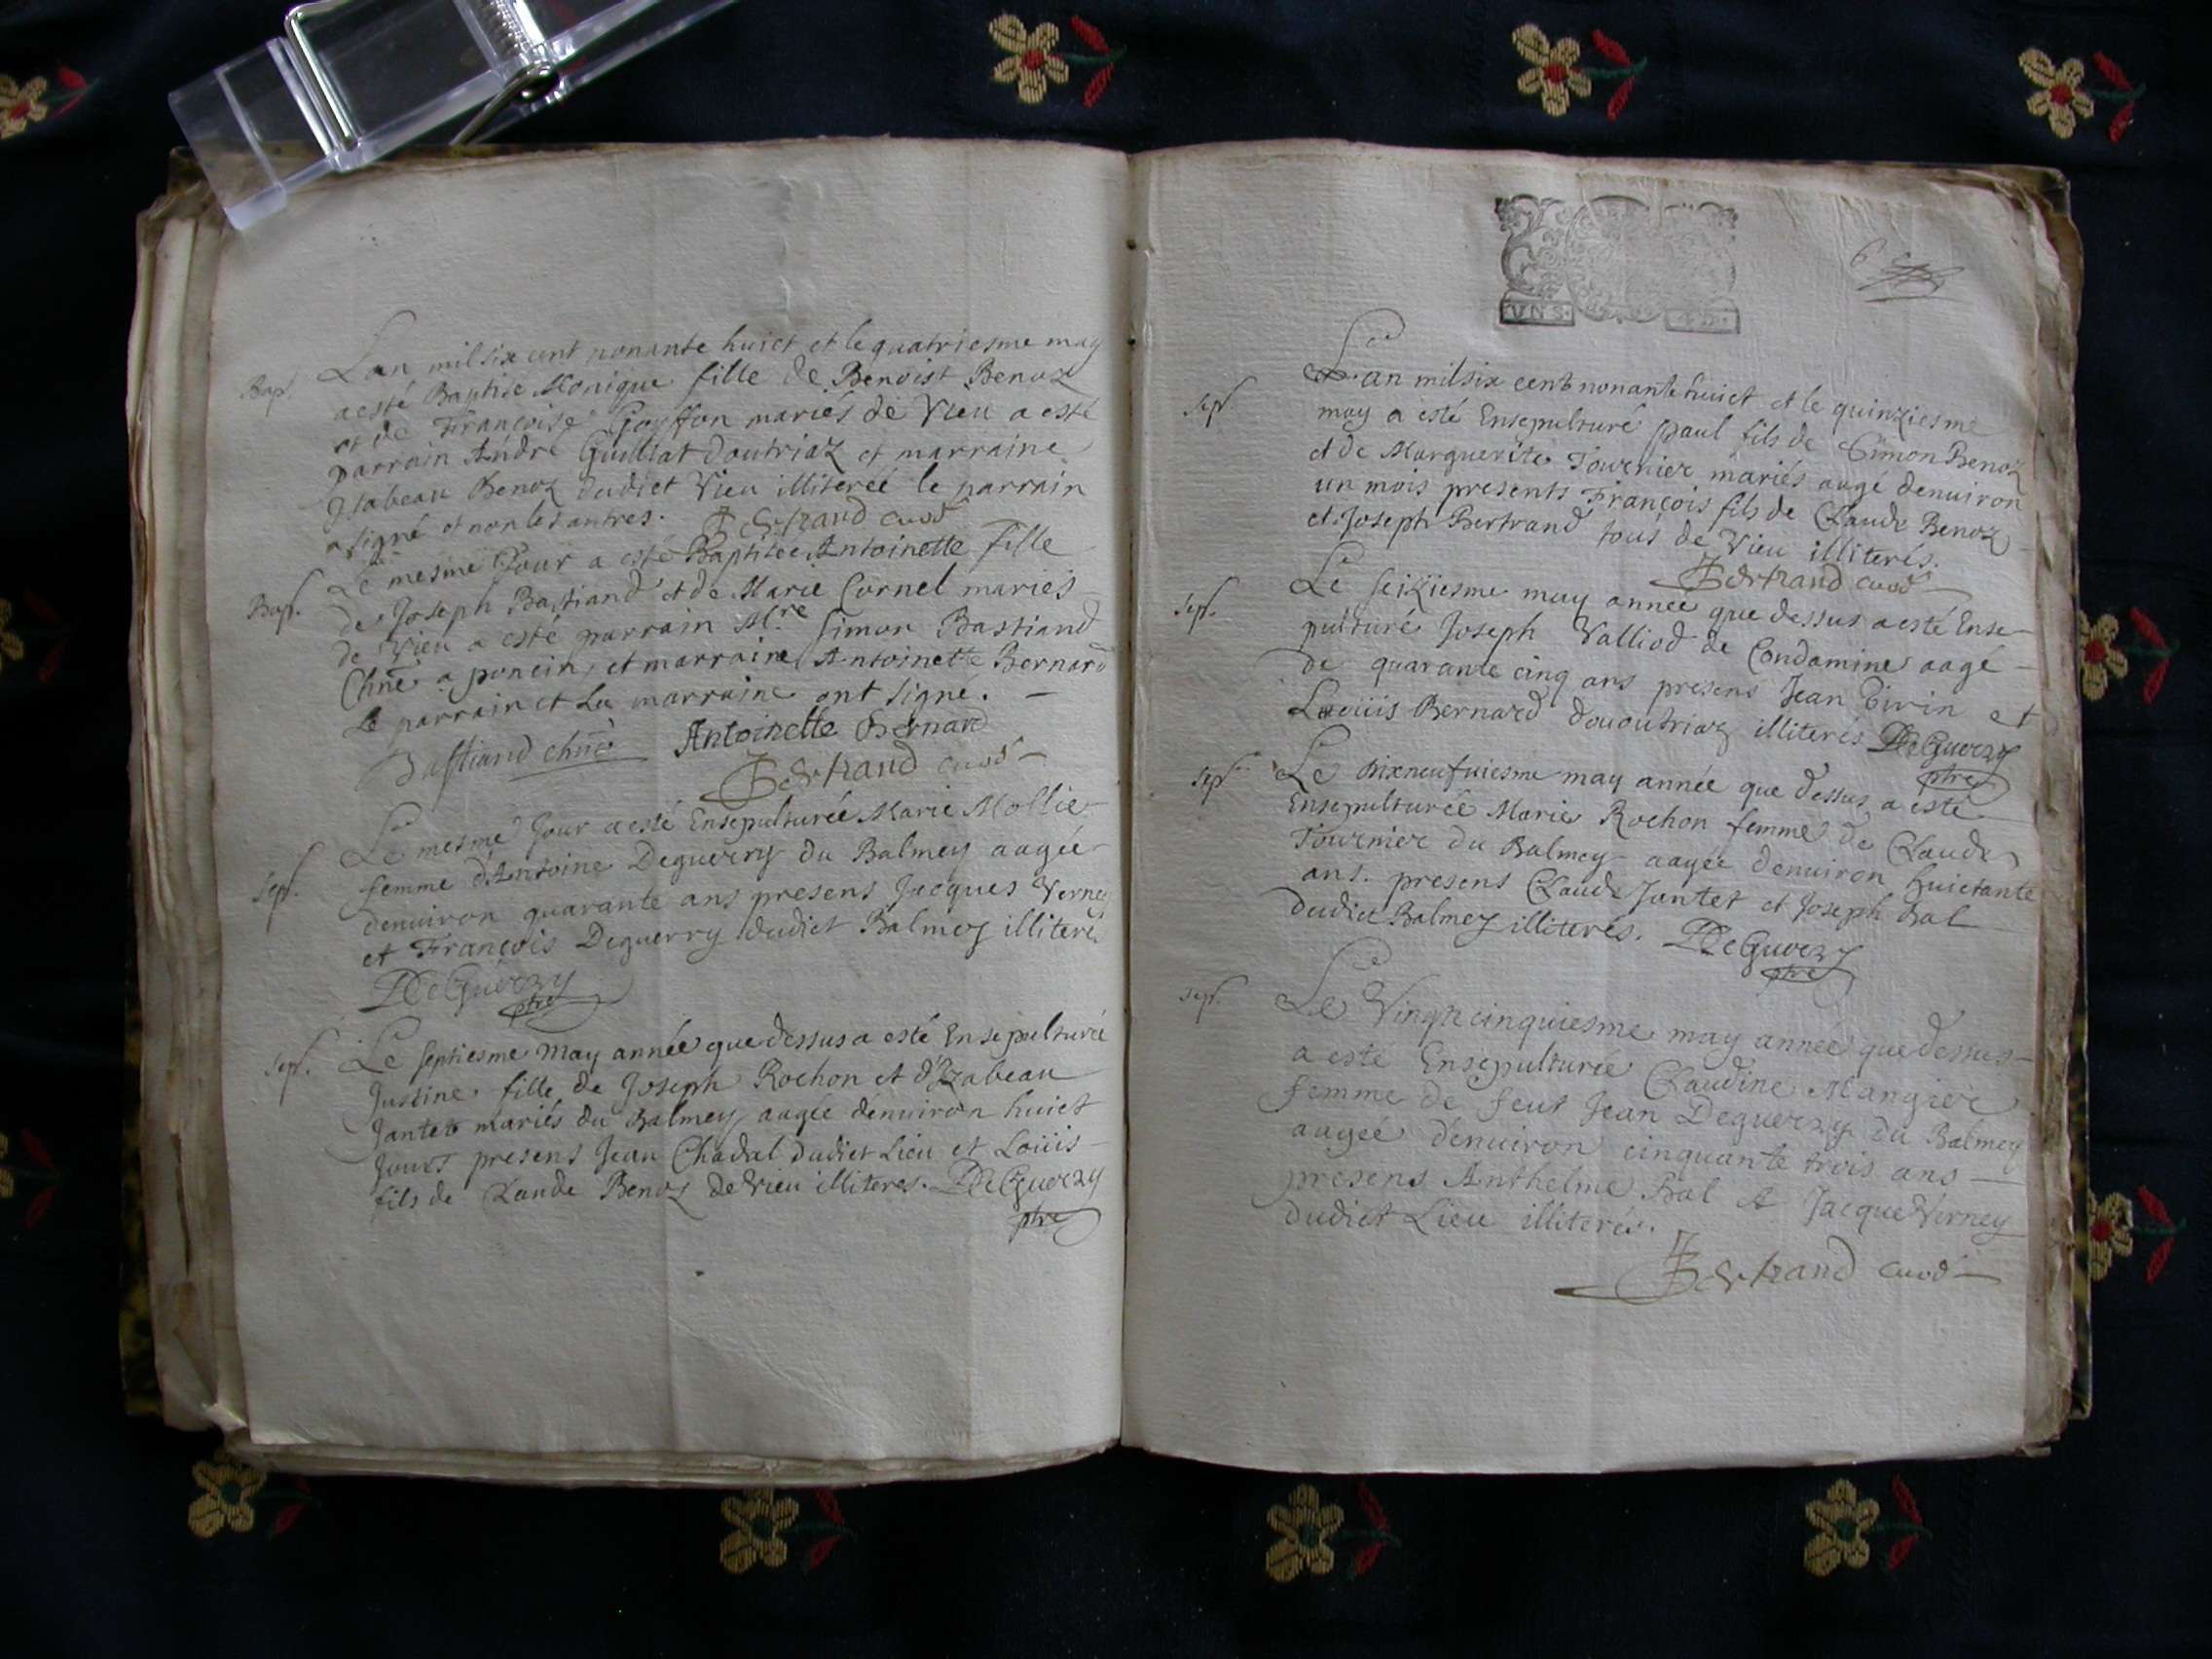 Bap.
Lan mil six cent nonante huict et le quatriesme may
a esté Baptise Monique fille de Benoist Benoz
et de Françoise Goyffon mariés de Vieu a esté
parrain André Guilliat doutriaz et marraine
Isabeau Benoz dudict Vieu illiterée le parrain
a signé et non les autres. Bertrand curé
Bap.
Le mesme Jour a esté Baptisée Antoinette fille
de Joseph Bastiand et de Marie Cornel mariés
de Vieu a esté parrain Mre Simon Bastiand
Chne a poncin, et marraine Antoinette Bernard
Le parrain et La marraine ont signé.
Bastiand chne Antoinette Bernard
Bertrand curé
Sep.
Le mesme Jour a esté Ensepulturée Marie Mollie
femme d'Antoine Deguerry du Balmey aagée
denuiron quarante ans presens Jacques Verney
et François Deguerry dudict Balmey illiteré
DeGuerry
ptre
Sep.
Le septiesme May année que dessus a esté Ensepulturée
Justine fille de Joseph Rochon et d'Izabeau
Jantet mariés du Balmey aagée denuiron huict
Jours presens Jean Chadal dudict Lieu et Loüis
fils de Claude Benoz de Vieu illiteres. DeGuerry
ptre
6
VN S.
Sep.
Lan mil six cent nonante huict et le quinziesme
may a esté Ensepulturé Paul fils de Simon Benoz
et de Marguerite Tournier mariés aagé denuiron
un mois presents François fils de Claude Benoz
et Joseph Bertrand tous de Vieu illiterés.
Bertrand curé
Sep.
Le seiziesme may année que dessus a esté Ense
pulturé Joseph Valliod de Condamine aagé
de quarante cinq ans presens Jean Tirin et
Loüis Bernard douutriaz illiterés DeGuerry
ptre
Sep.
Le Dixneufuiesme may année que dessus a esté
Ensepulturée Marie Rochon femme de Claude
Tournier du Balmey aagée denuiron huictante
ans. presens Claude Jantet et Joseph Bal
dudict Balmey illiterés. DeGuerry
ptre
Sep.
Le Vingtcinquiesme may année que dessus
a esté Ensepulturée Claudine Mangier
femme de feut Jean Deguerry du Balmey
aagée denuiron cinquante trois ans
presens Anthelme Bal & Jacque Verney
dudict Lieu illiterés.
Bertrand curé